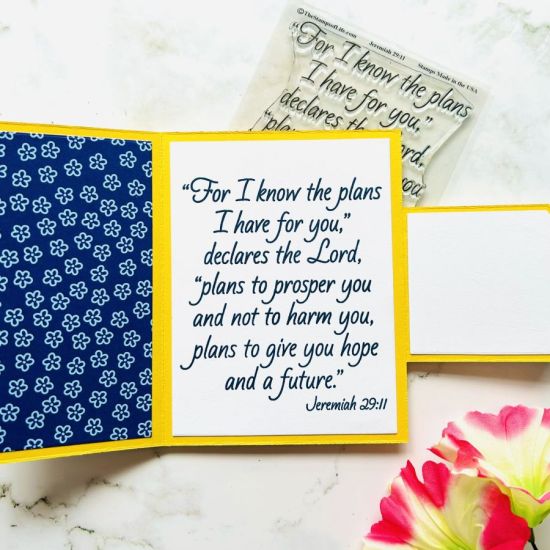 ©TheStampsofLife.com Jeremiah 29:11 Stamps Made in the USA
"For I know the plans
I have for you,"
declares the Lord,
"plans
"For I know the plans
I have for you,"
declares the Lord,
"plans to prosper you
and not to harm you,
plans to give you hope
and a future."
Jeremiah 29:11